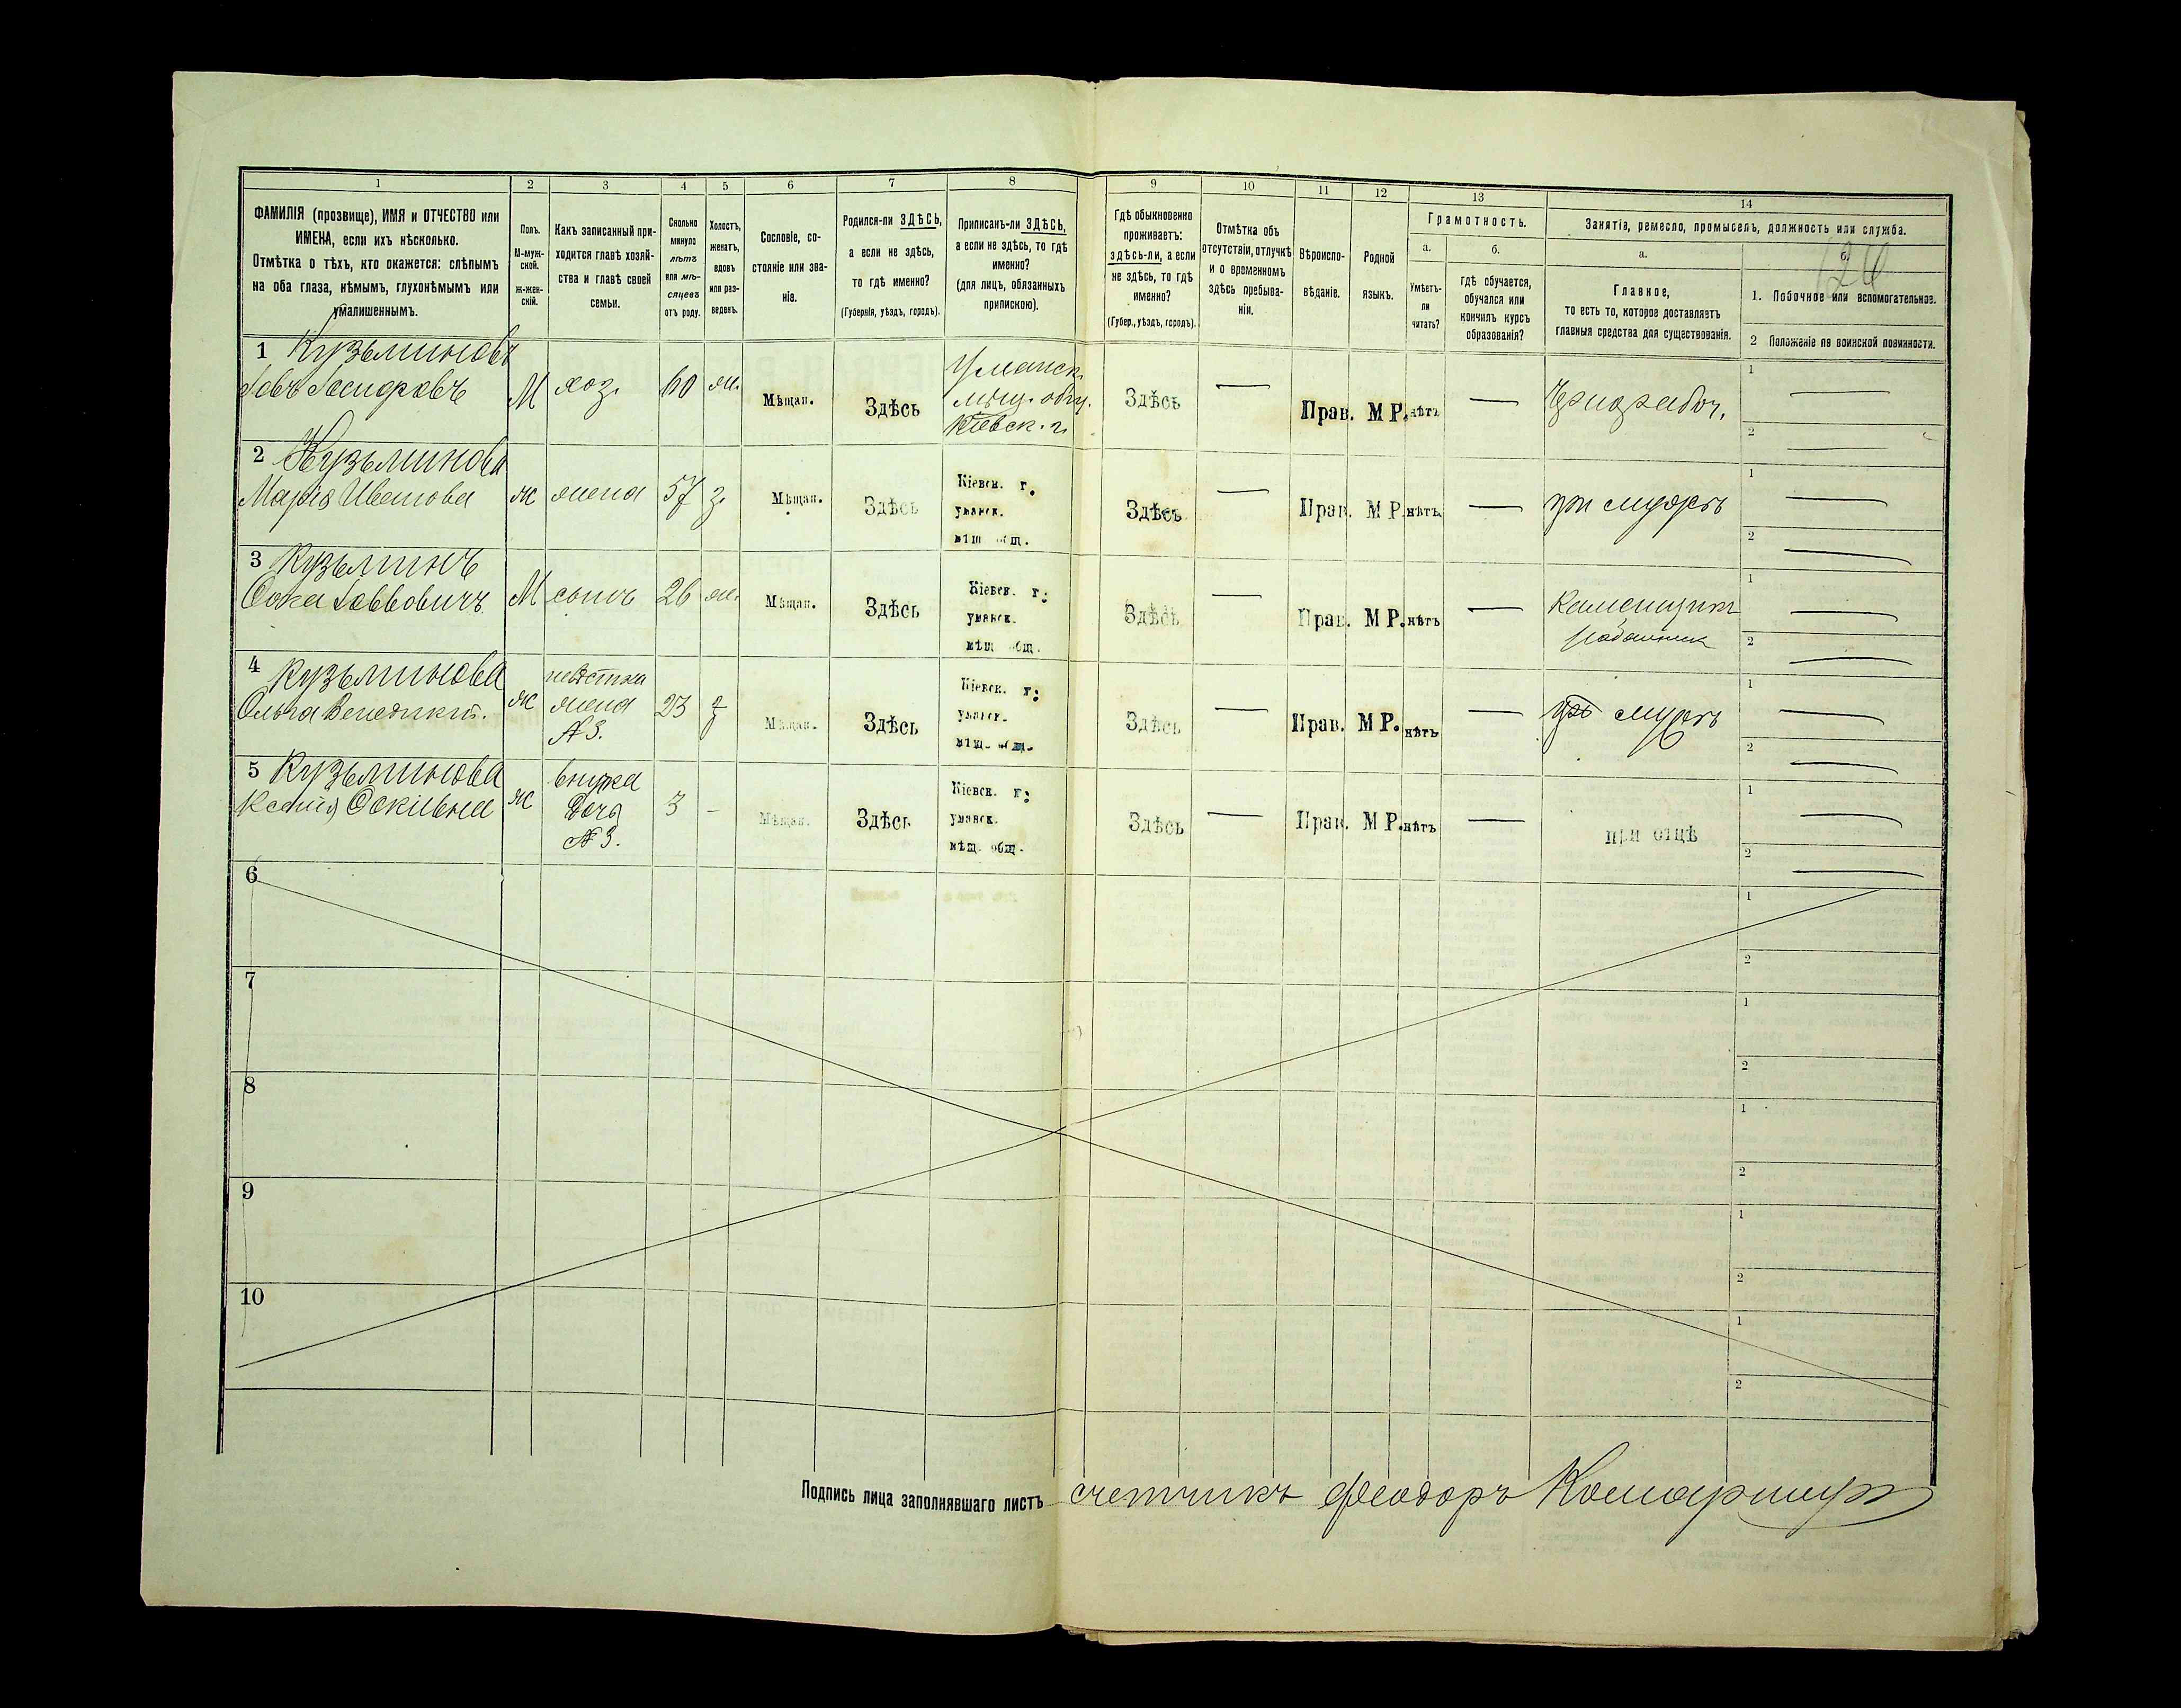 1 2 3 4 5 6 7 8 9 10 11 12 13 14
ФАМИЛІЯ (прозвище), ИМЯ и ОТЧЕСТВО или
ИМЕНА, если ихъ нѣсколько.
Отмѣтка о тѣхъ, кто окажется: слѣпымъ
на оба глаза, нѣмымъ, глухонѣмымъ или
умалишеннымъ.
Полъ.
М-муж-
ской.
ж-жен-
скій.
Какъ записанный при-
ходится главѣ хозяй-
ства и главѣ своей
семьи.
Сколько
минуло
лѣтъ
или мѣ-
сяцевъ
отъ роду.
Холостъ,
женатъ,
вдовъ
или раз-
веденъ.
Сословіе, со-
стояніе или зва-
ніе.
Родился-ли ЗДѢСЬ,
а если не здѣсь,
то гдѣ именно?
(Губернія, уѣздъ, городъ).
Приписанъ-ли ЗДѢСЬ,
а если не здѣсь, то гдѣ
именно?
(для лицъ, обязанныхъ
припискою).
Гдѣ обыкновенно
проживаетъ:
здѣсь-ли, а если
не здѣсь, то гдѣ
именно?
(Губер., уѣздъ, городъ).
Отмѣтка объ
отсутствіи, отлучкѣ
и о временномъ
здѣсь пребыва-
ніи.
Вѣроиспо-
вѣданіе.
Родной
языкъ.
Грамотность.
а.
Умѣетъ-
ли
читать?
б.
гдѣ обучается,
обучался или
кончилъ курсъ
образованія?
Занятія, ремесло, промыселъ, должность или служба.
а.
Главное,
то есть то, которое доставляетъ
главныя средства для существованія.
б.
126
1. Побочное или вспомогательное.
2 Положеніе по воинской повинности.
1 Кузьминовъ
Іовъ Іосифовъ
М хоз. 60 ж. Мѣщан. Здѣсь
Уманск.
мѣщ. общ.
Кіевск. г.
Здѣсь — Прав. М Р. нѣтъ — Чернорабоч.
1 —
2 —
2 Кузьминова
Марія Иванова
ж жена 57 з. Мѣщан. Здѣсь
Кіевск. г.
уманск.
мѣщ общ.
Здѣсь — Прав. М Р. нѣтъ — при мужѣ
1 —
2 —
3 Кузьминъ
Іоввовичъ
М сынъ 26 ж. Мѣщан. Здѣсь
Кіевск. г.
уманск.
мѣщ общ.
Здѣсь — Прав. М Р. нѣтъ — Каменщик
работник
1 —
2 —
4 Кузьминова
Ольга Венедикт.
ж
невѣстка
жена
№ 3.
23 з Мѣщан. Здѣсь
Кіевск. г.
уманск.
мѣщ. общ.
Здѣсь — Прав. М Р. нѣтъ — при мужѣ
1 —
2 —
5 Кузьминова
Ксенія
ж
внучка
Дочь
№ 3.
3 — Мѣщан. Здѣсь
Кіевск. г.
уманск.
мѣщ. общ.
Здѣсь — Прав. М Р. нѣтъ — при отцѣ
1 —
2 —
6
1
2
7
1
2
8
1
2
9
1
2
10
1
2
Подпись лица заполнявшаго листъ счетчикъ Феодоръ